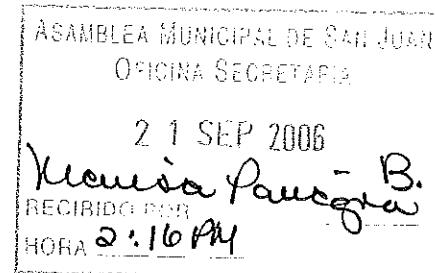 ASAMBLEA MUNICIPAL DE SAN JUAN
OFICINA SECRETARIA
2 1 SEP 2006
B.
RECIBIDO POR
HORA 2:16 PM